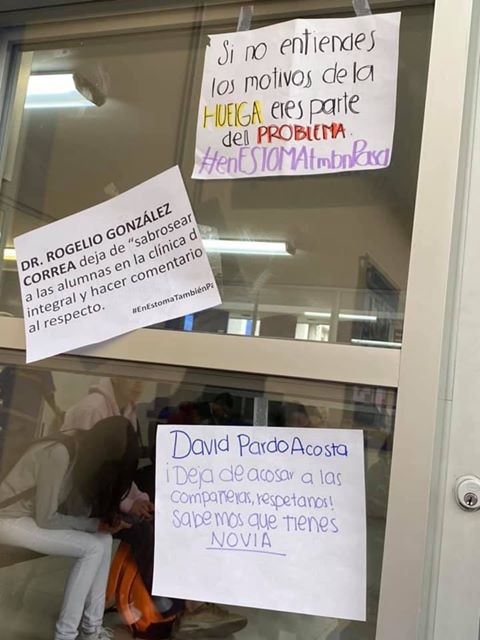 Si no entiendes
los motivos de la
HUELGA eres parte
del PROBLEMA.
#enESTOMAtmbnPasa
DR. ROGELIO GONZÁLEZ
CORREA deja de "sabrosear
a las alumnas en la clínica d
integral y hacer comentario
al respecto.
#EnEstomaTambiénPa
David Pardo Acosta
¡Deja de acosar a las
compañeras, respetanos!
Sabemos que tienes
NOVIA